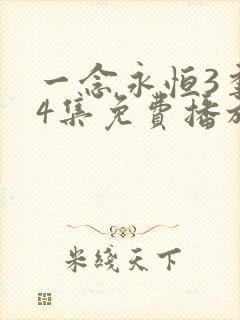 一念永恒3季
4集免费播放
米线天下